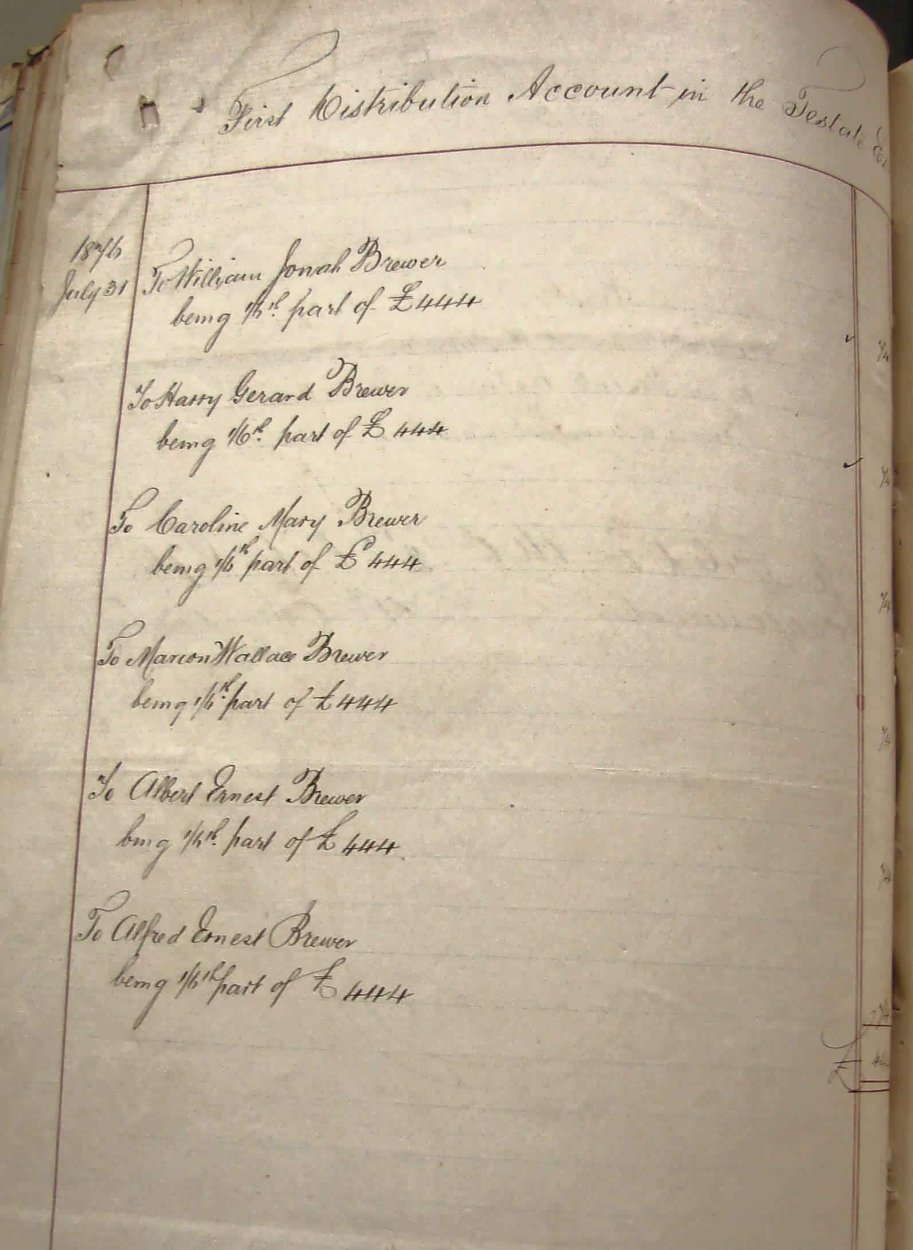 First Distribution Account in the Testate
1876
July 31
To William Jonah Brewer
being 1/6th. part of £444
To Harry Gerard Brewer
being 1/6th. part of £444
To Caroline Mary Brewer
being 1/6th part of £444
To Marion Wallace Brewer
being 1/6th. part of £444
To Albert Ernest Brewer
being 1/6th. part of £444
To Alfred Ernest Brewer
being 1/6th part of £444
£